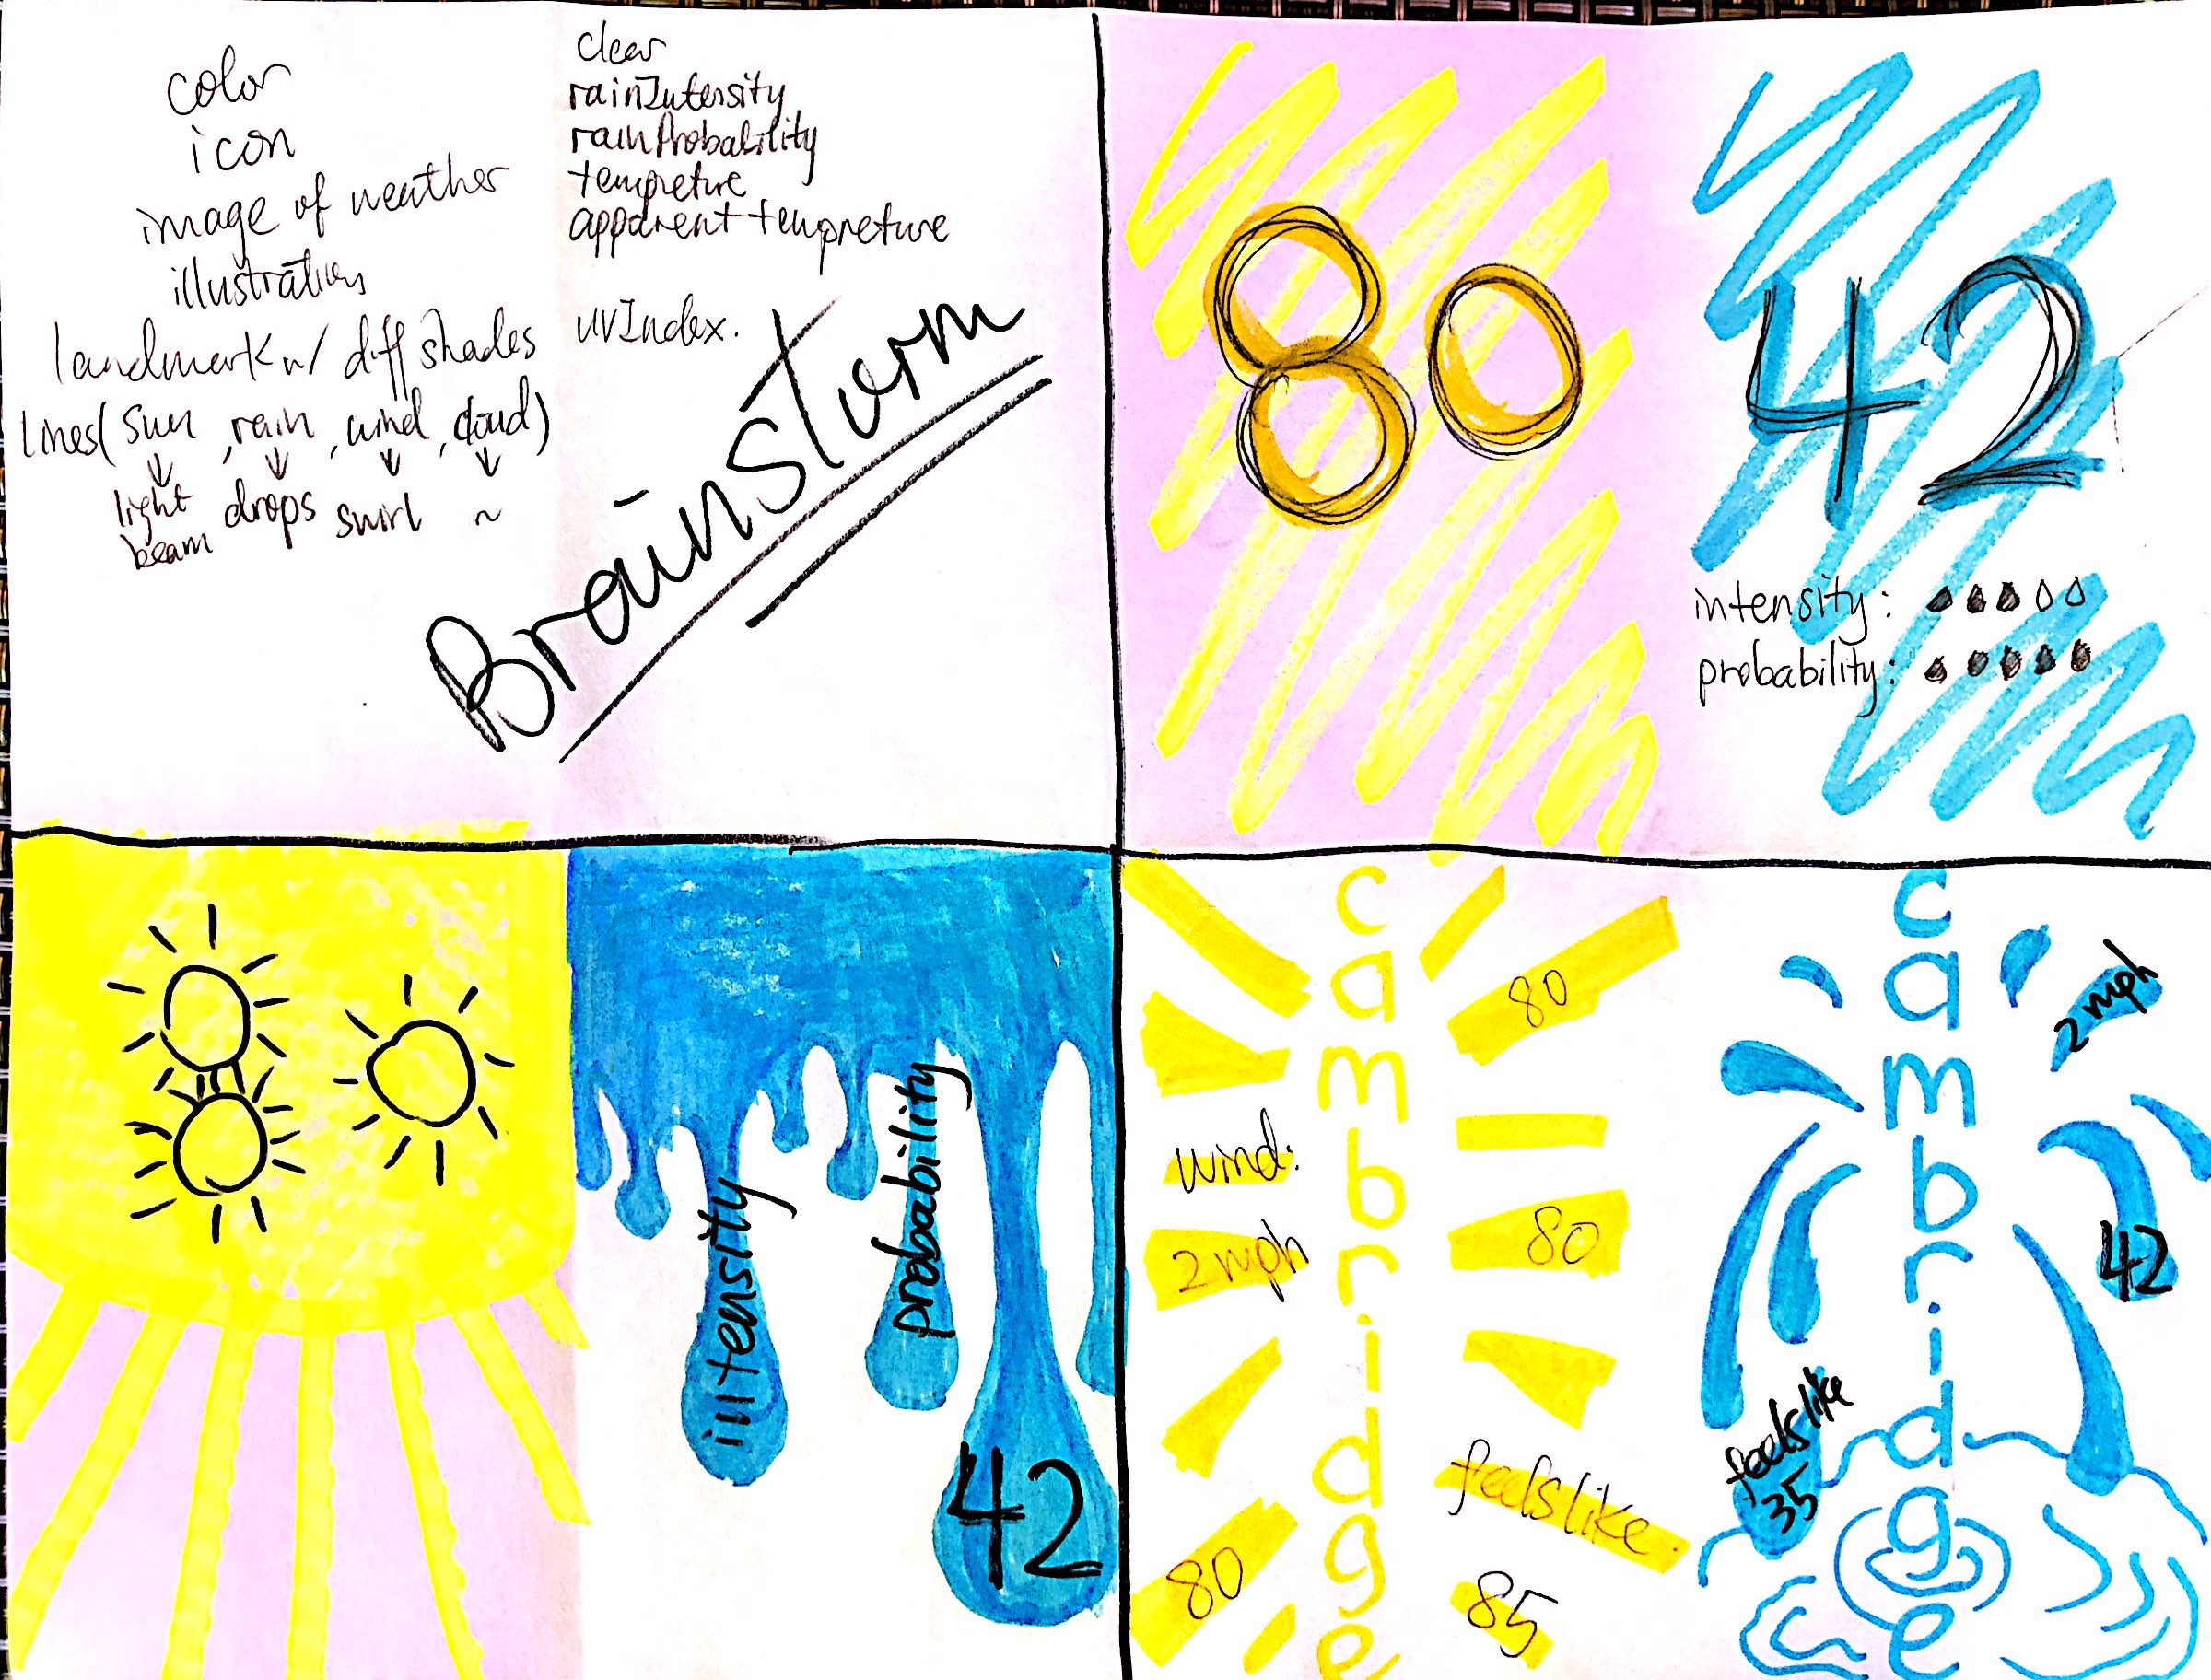 color
icon
image of weather
illustration
landmark w/ diff shades
lines( sun , rain , wind , cloud )
light drops swirl ~
beam
clear
rainIntensity
rainProbability
tempreture
apparent tempreture
uvIndex.
Brainstorm
80
42
intensity:
probability:
intensity
probability
42
cambridge
80
wind:
2 mph
80
feels like
80
85
cambridge
2 mph
42
feels like
35